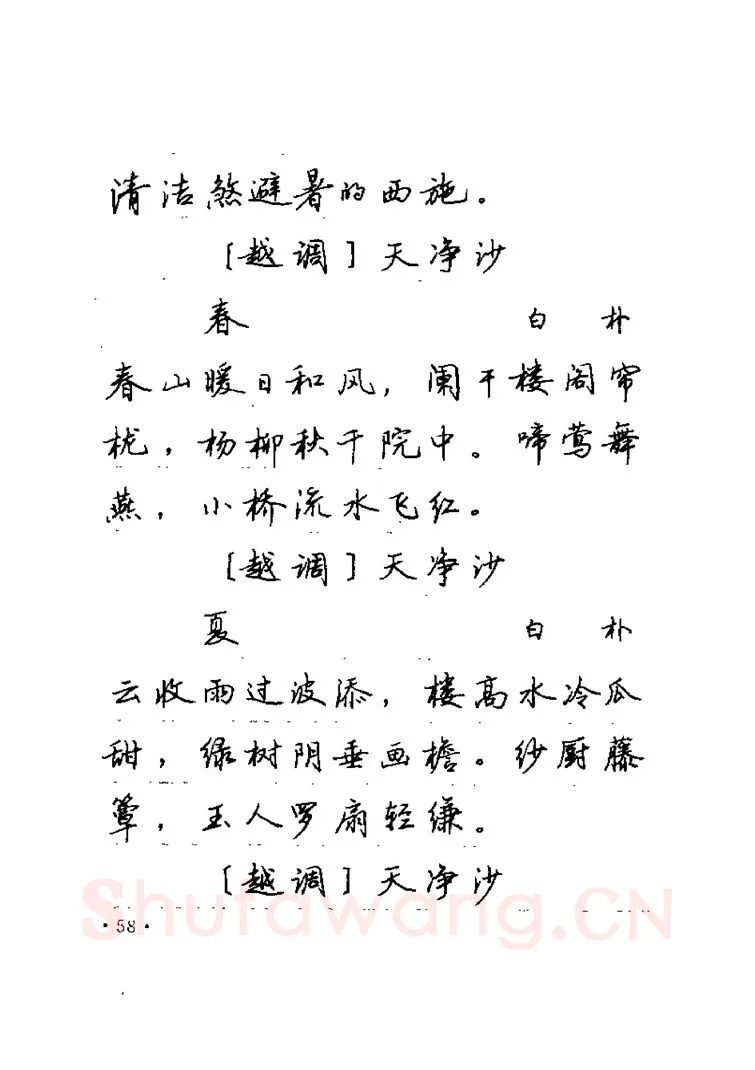 清洁煞避暑的西施。
[越调]天净沙
春 白 朴
春山暖日和风，阑干楼阁帘
栊，杨柳秋千院中。啼莺舞
燕，小桥流水飞红。
[越调]天净沙
夏 白 朴
云收雨过波添，楼高水冷瓜
甜，绿树阴垂画檐。纱厨藤
簟，玉人罗扇轻缣。
[越调]天净沙
Shufawang.CN
·58·